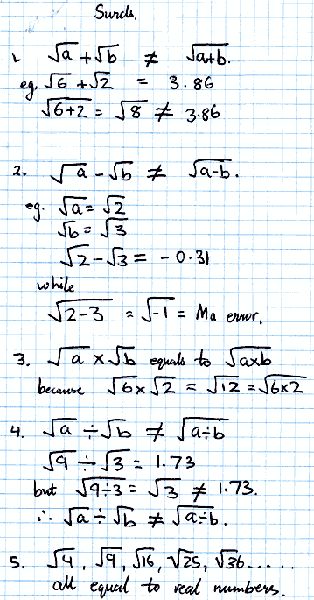 Surds.
1. √a + √b ≠ √a+b.
eg. √6 + √2 = 3.86
√6+2 = √8 ≠ 3.86
2. √a - √b ≠ √a-b.
eg. √a = √2
√b = √3
√2 - √3 = -0.31
while
√2-3 = √-1 = Ma error.
3. √a x √b equals to √axb
because √6 x √2 = √12 = √6x2
4. √a ÷ √b ≠ √a÷b
√9 ÷ √3 = 1.73
but √9÷3 = √3 ≠ 1.73.
∴ √a ÷ √b ≠ √a÷b.
5. √4, √9, √16, √25, √36.....
all equal to real numbers.